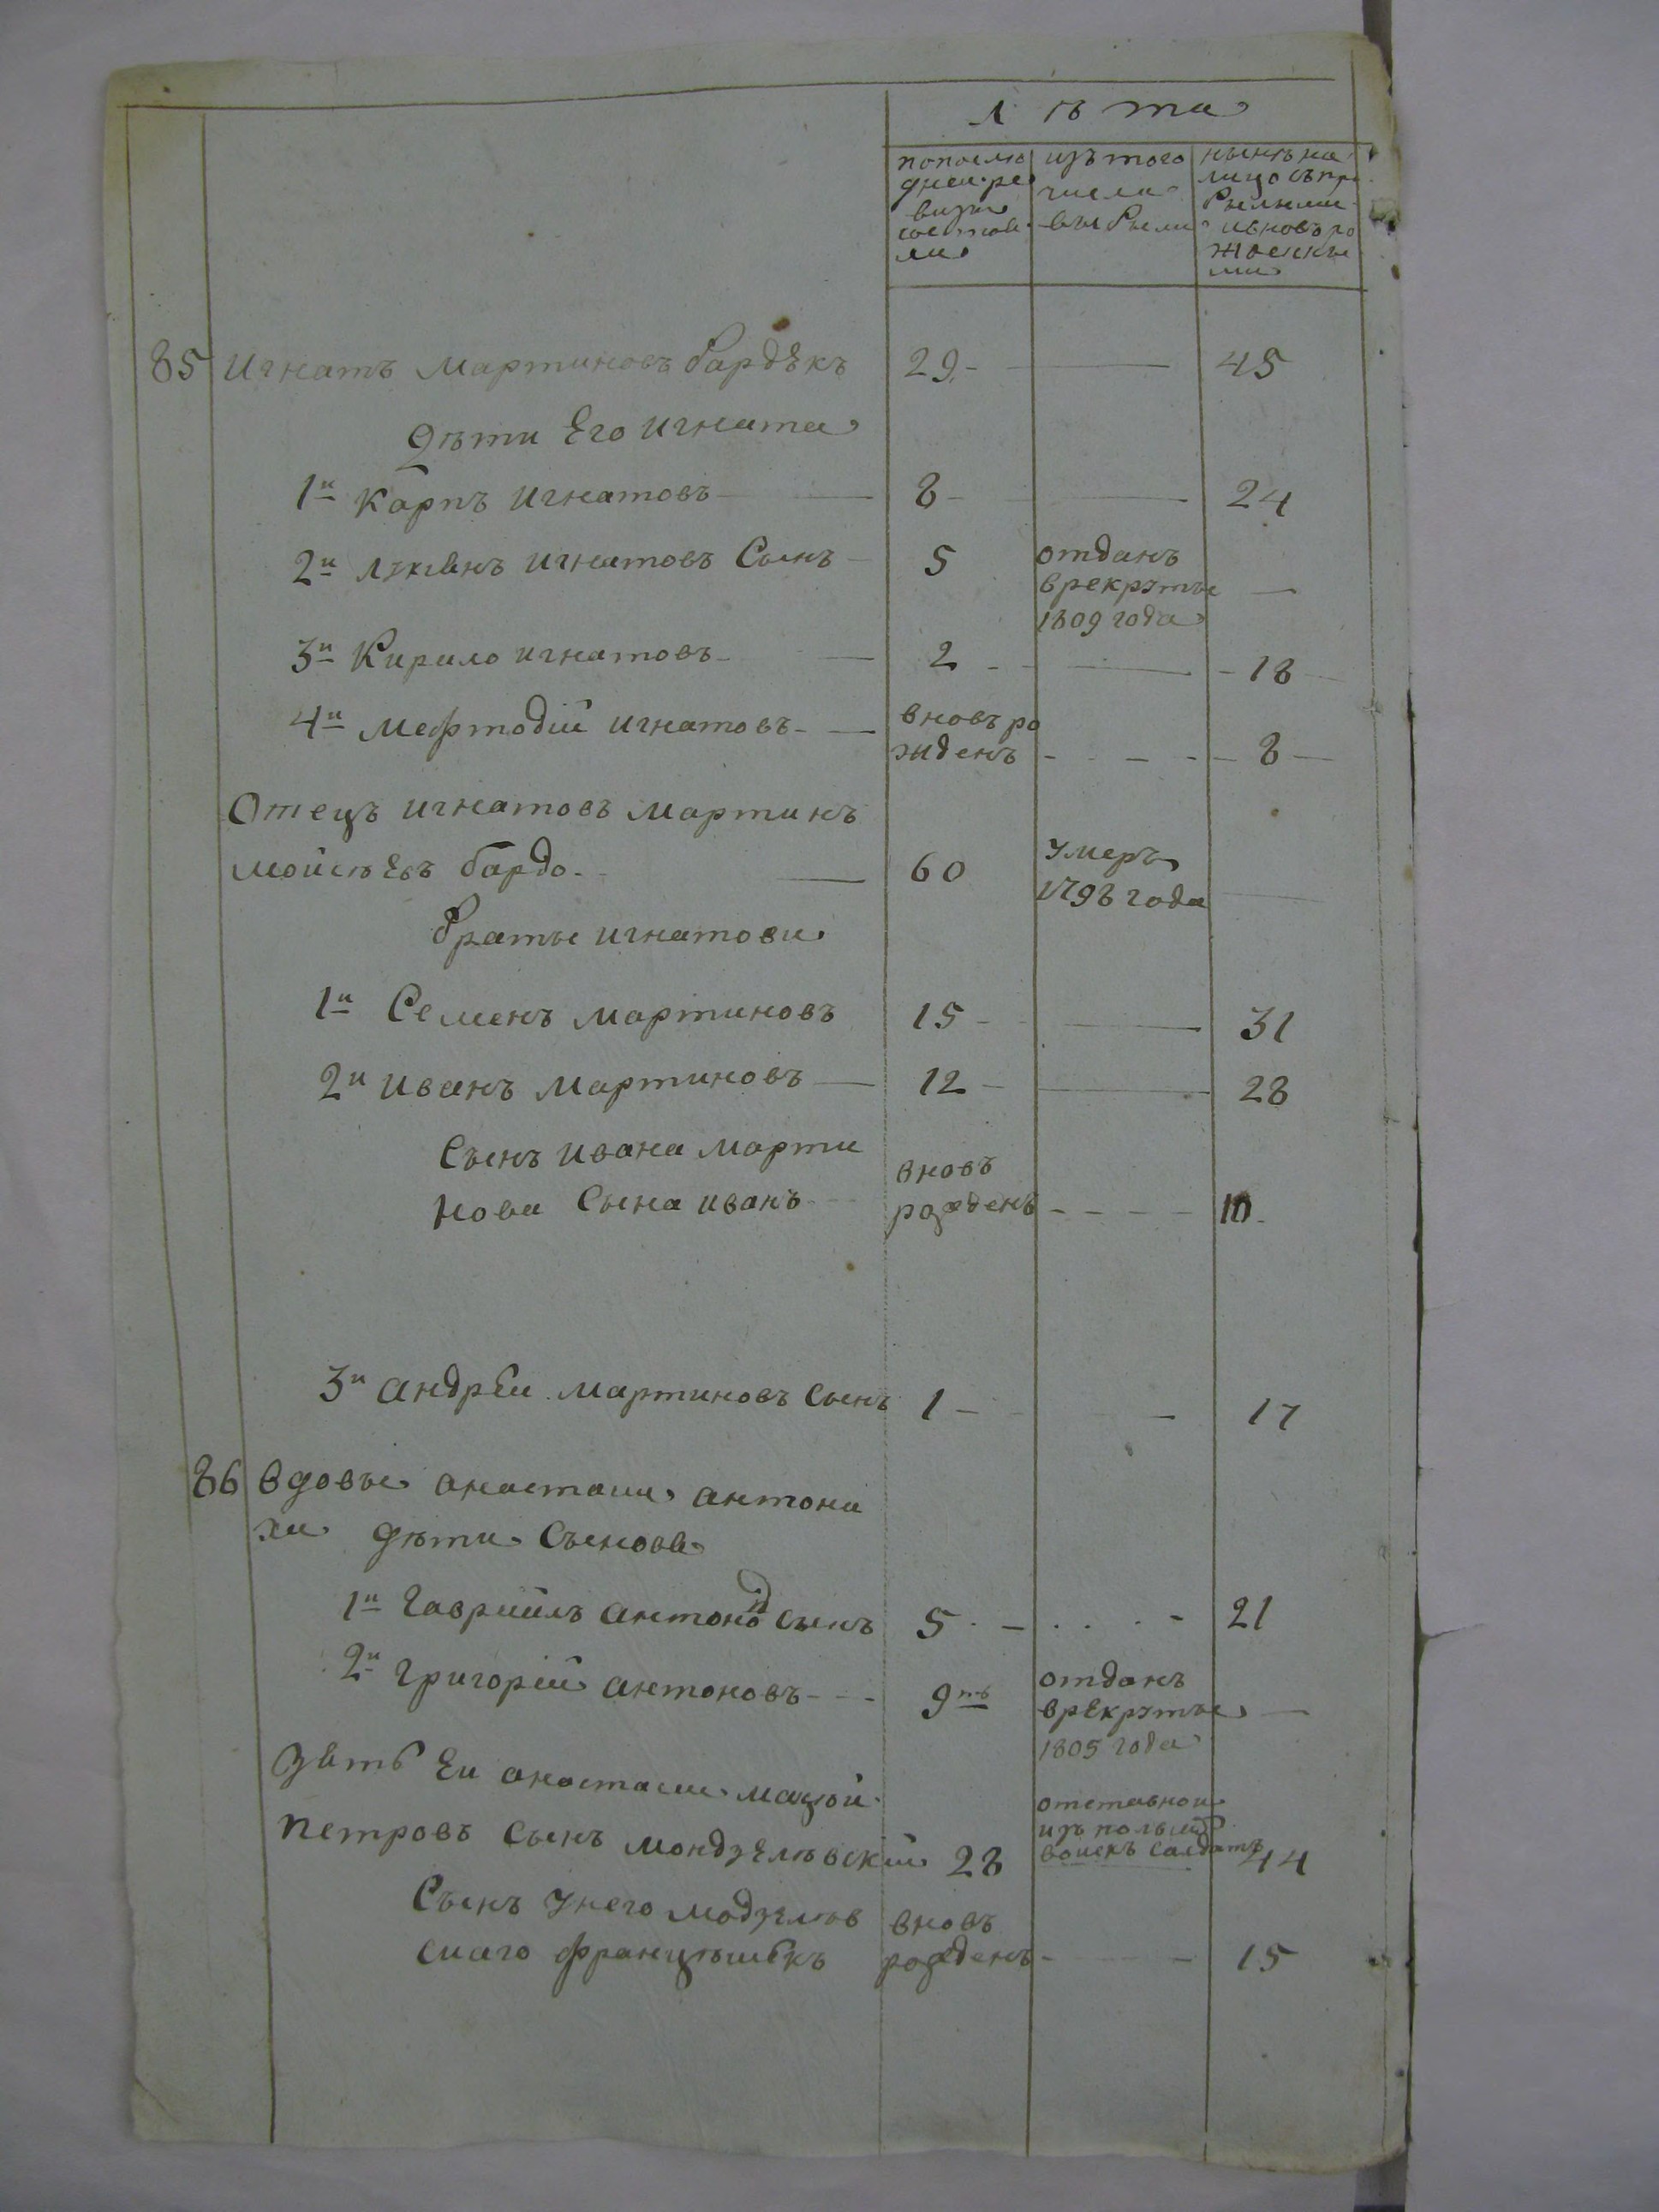 лѣта
попосле
дней ре
визи
состоя
ли
изъ того
числа
выбыли
нынѣ на
лицо съ при
былыми
и вновь ро
жденны
ми
85 Игнатъ Мартиновъ бардѣкъ 29 — 45
дѣти Его игната
1й Карпъ игнатовъ — 8 — 24
2й лукіянъ игнатовъ Сынъ — 5 отданъ
врекруты —
1809 года
3й Кирило игнатовъ — 2 — 18
4й мефтодій игнатовъ — вновь ро
жденъ — 8
Отецъ игнатовъ мартинъ
мойсѣевъ бардо — 60 умеръ
1798 года
братье игнатови
1й Семенъ мартиновъ 15 — 31
2й иванъ мартиновъ — 12 — 28
Сынъ ивана марти
нова Сына иванъ вновь
рожденъ — 10
3й андрей мартиновъ Сынъ 1 — 17
86 вдовы анастасіи антони
хи дѣти Сыновя
1й гаврийлъ антоновъ сынъ 5 — 21
2й григорій антоновъ — 9ть отданъ
врекруты —
1805 года
зять Еи анастасіи мацюй
петровъ сынъ мондзелѣвскій 28 отставной
изъ польскихъ
воискъ Салдатъ 44
Сынъ у него модзелѣв
скаго францѣшекъ вновь
рожденъ — 15